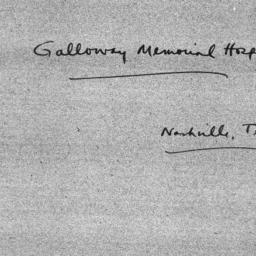 Galloway Memorial Hosp
Nashville, T